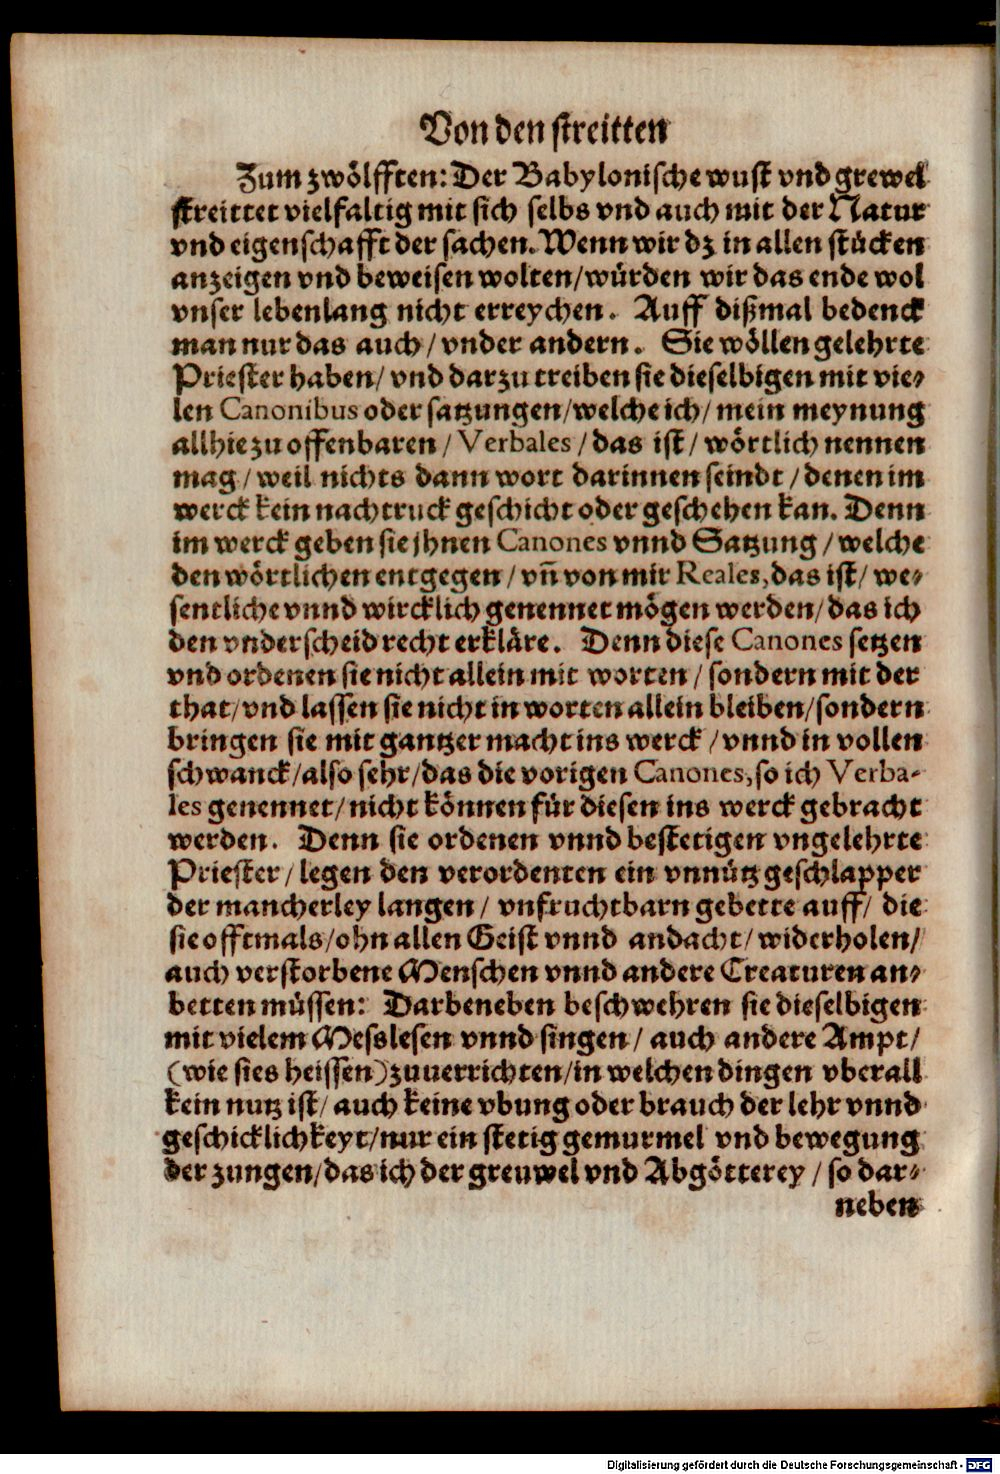 Von den streitten
Zum zwölfften: Der Babylonische wust vnd grewel
streittet vielfaltig mit sich selbs vnd auch mit der Natur
vnd eigenschafft der sachen. Wenn wir dz in allen stücken
anzeigen vnd beweisen wolten/würden wir das ende wol
vnser lebenlang nicht erreychen. Auff dißmal bedenck
man nur das auch/vnder andern. Sie wöllen gelehrte
Priester haben/ vnd darzu treiben sie dieselbigen mit vie⸗
len Canonibus oder satzungen/welche ich/ mein meynung
allhie zu offenbaren/ Verbales/das ist/ wörtlich nennen
mag/weil nichts dann wort darinnen seindt/denen im
werck kein nachtruck geschicht oder geschehen kan. Denn
im werck geben sie jhnen Canones vnnd Satzung/welche
den wörtlichen entgegen/ vñ von mir Reales, das ist/ we⸗
sentliche vnnd wircklich genennet mögen werden/das ich
den vnderscheid recht erkläre. Denn diese Canones setzen
vnd ordenen sie nicht allein mit worten/ sondern mit der
that/vnd lassen sie nicht in worten allein bleiben/sondern
bringen sie mit gantzer macht ins werck/vnnd in vollen
schwanck/also sehr/das die vorigen Canones, so ich Verba-
les genennet/nicht können für diesen ins werck gebracht
werden. Denn sie ordenen vnnd bestetigen vngelehrte
Priester/ legen den verordenten ein vnnütz geschlapper
der mancherley langen/ vnfruchtbarn gebette auff/ die
sie offtmals/ohn allen Geist vnnd andacht/widerholen/
auch verstorbene Menschen vnnd andere Creaturen an⸗
betten müssen: Darbeneben beschwehren sie dieselbigen
mit vielem Messlesen vnnd singen/ auch andere Ampt/
(wie sies heissen)zuuerrichten/in welchen dingen vberall
kein nutz ist/ auch keine vbung oder brauch der lehr vnnd
geschicklichkeyt/nur ein stetig gemurmel vnd bewegung
der zungen/das ich der greuwel vnd Abgötterey/so dar⸗
neben
Digitalisierung gefördert durch die Deutsche Forschungsgemeinschaft - DFG